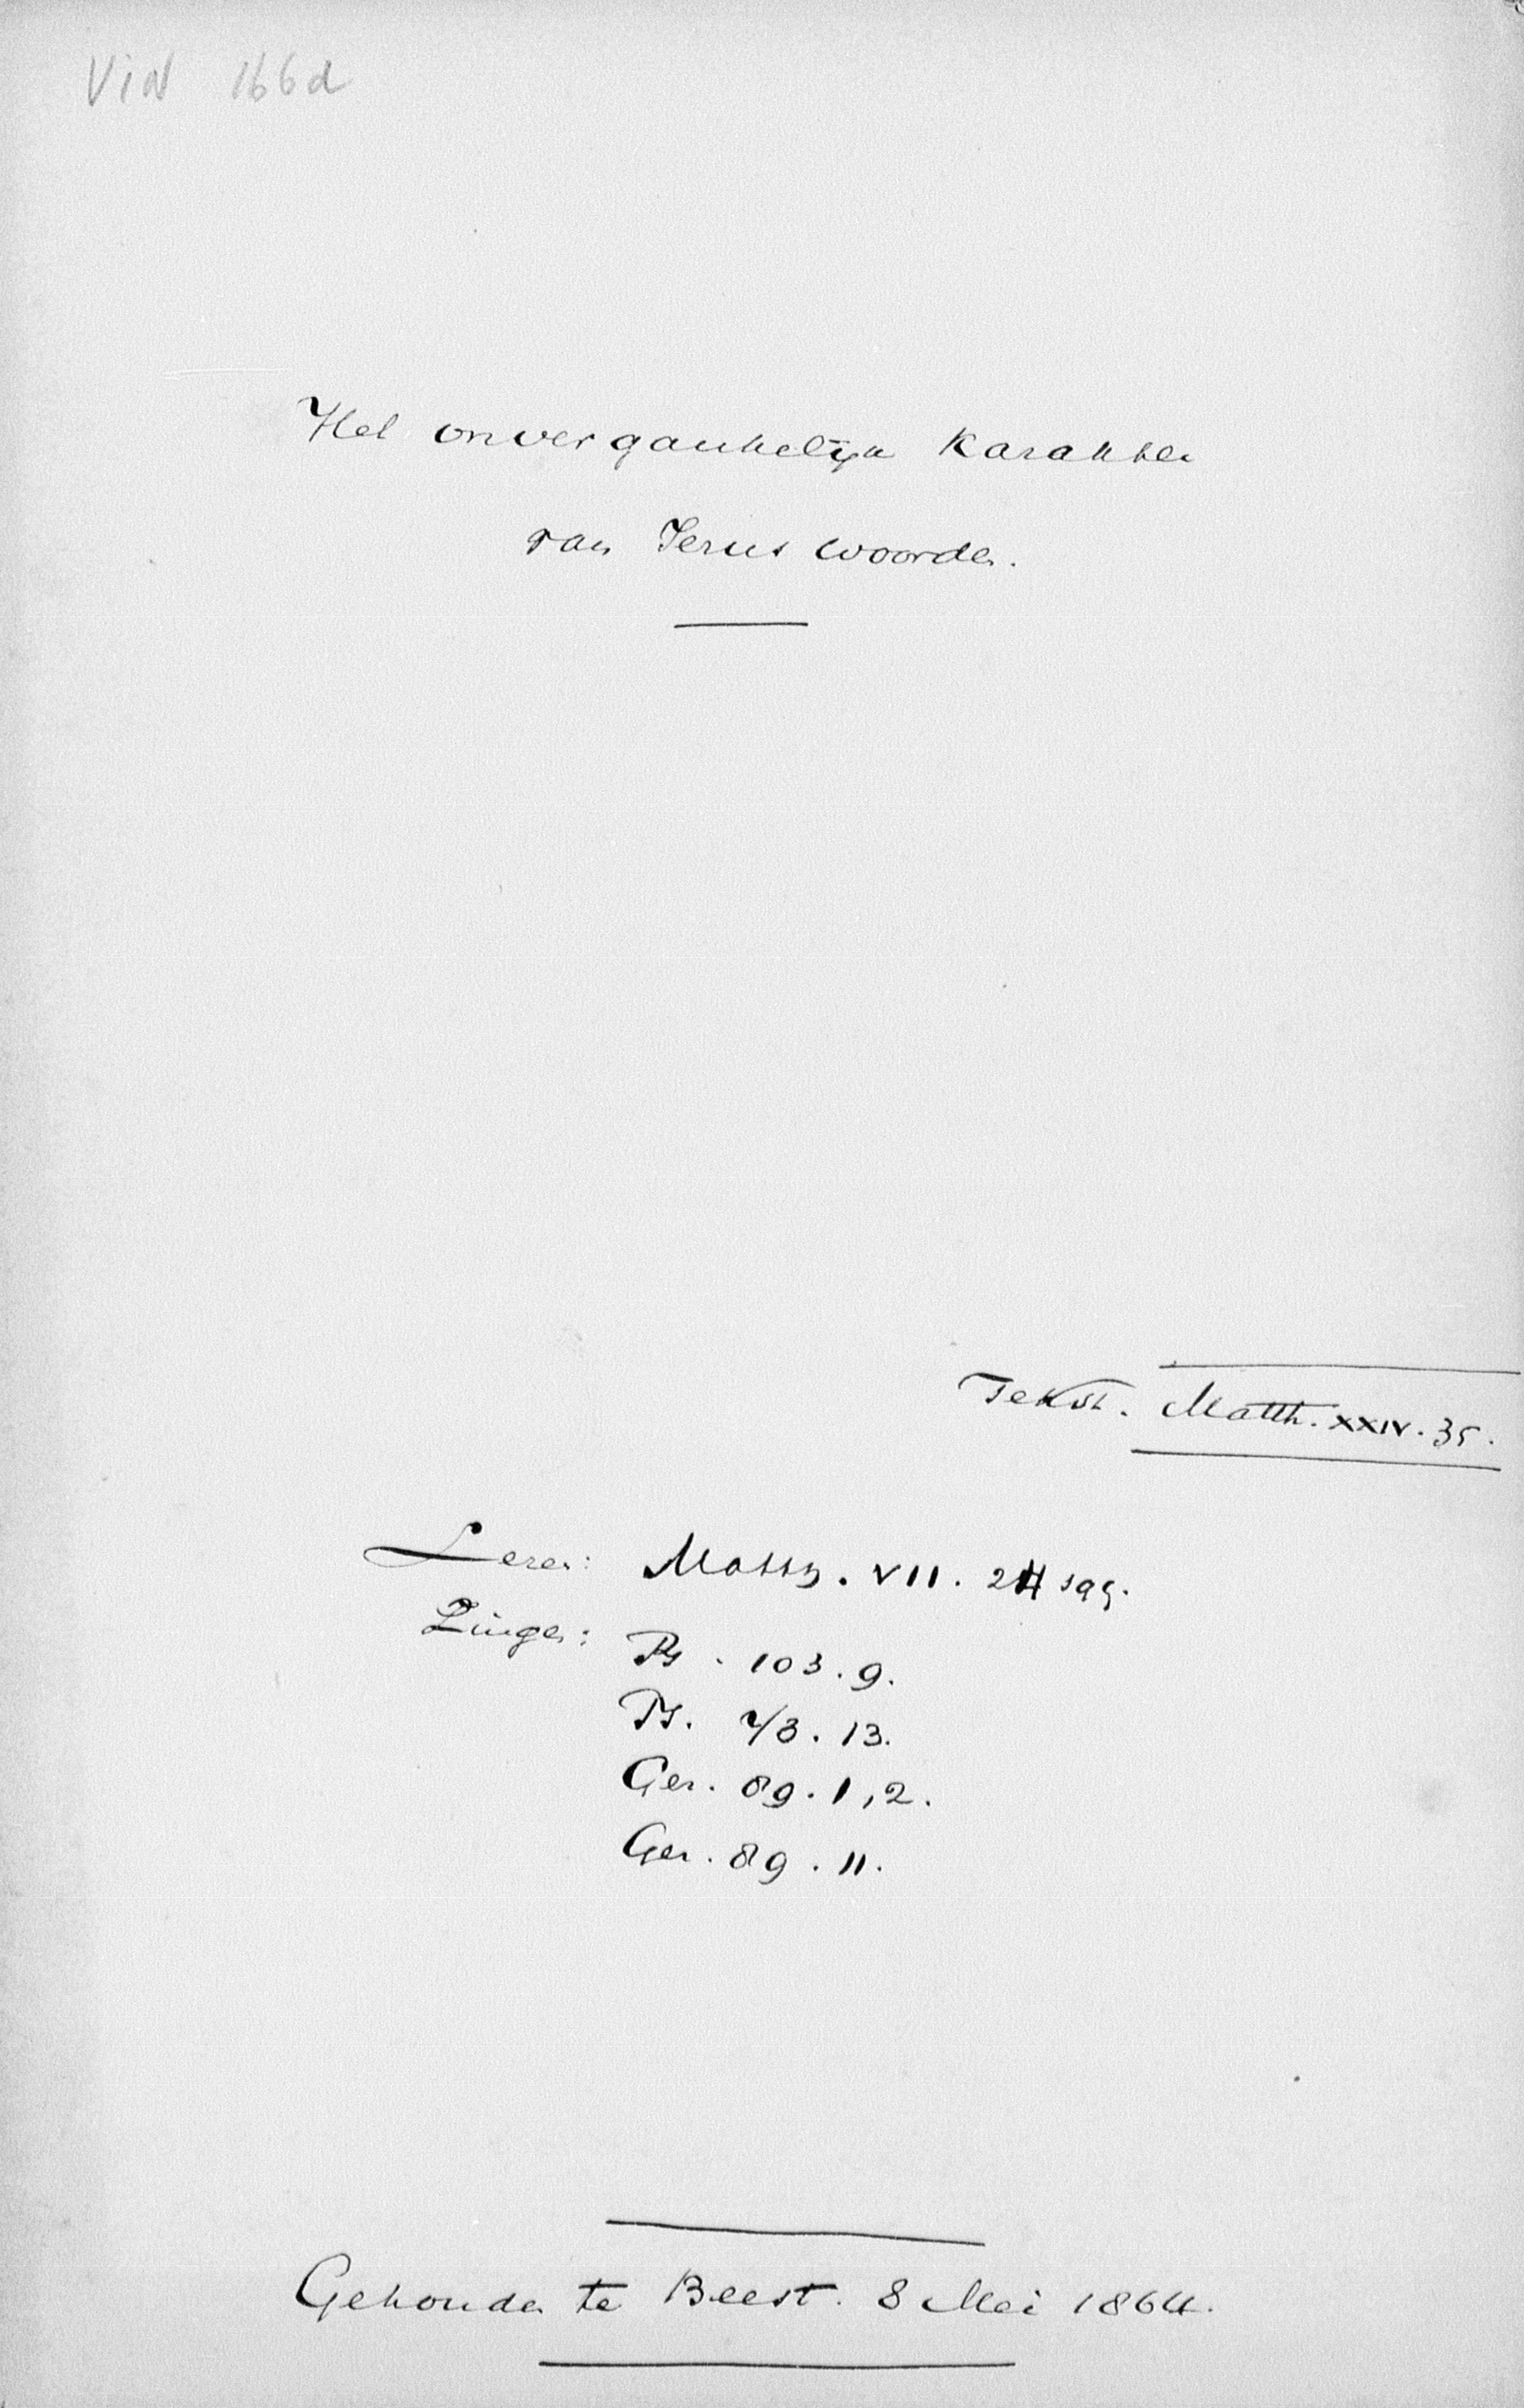 VIN 166d
Het onvergankelijk karakter
van Jezus woorden.
Tekst. Matth. XXIV. 35.
Lezen: Matth. VII. 24 sqq.
Zingen:
Ps. 103. 9.
Ps. 73. 13.
Gez. 89. 1, 2.
Gez. 89. 11.
Gehouden te Beest. 8 Mei 1864.